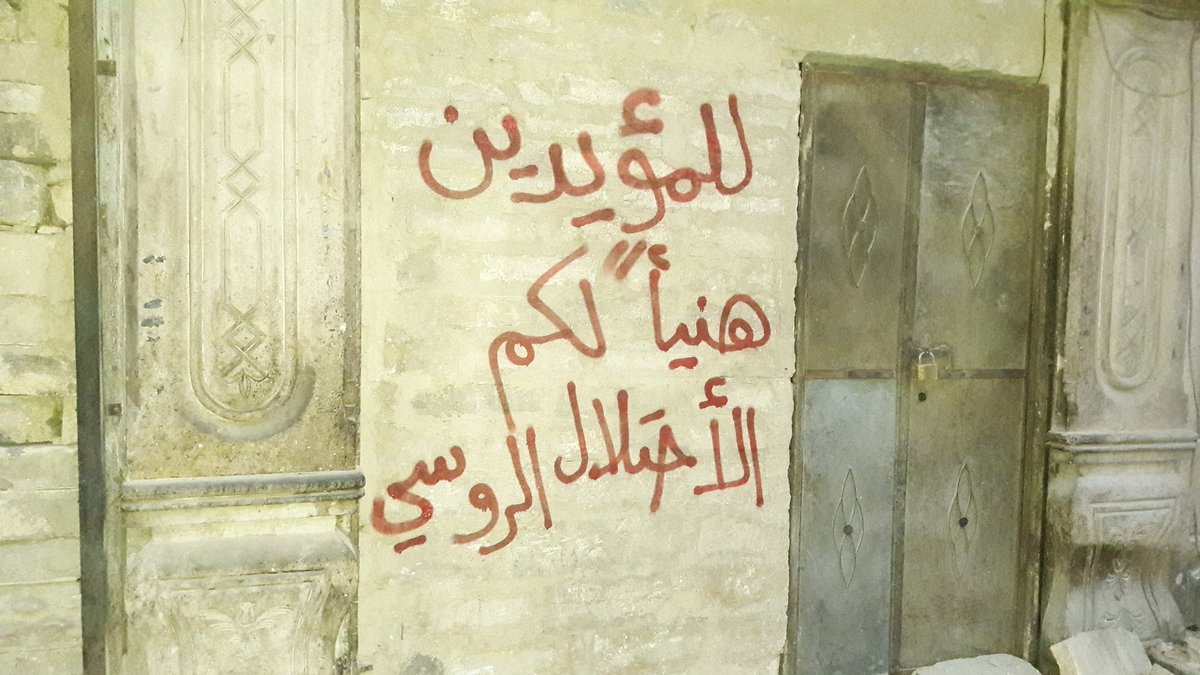 للمؤيدين
هنيأً لكم
الأحتلال الروسي